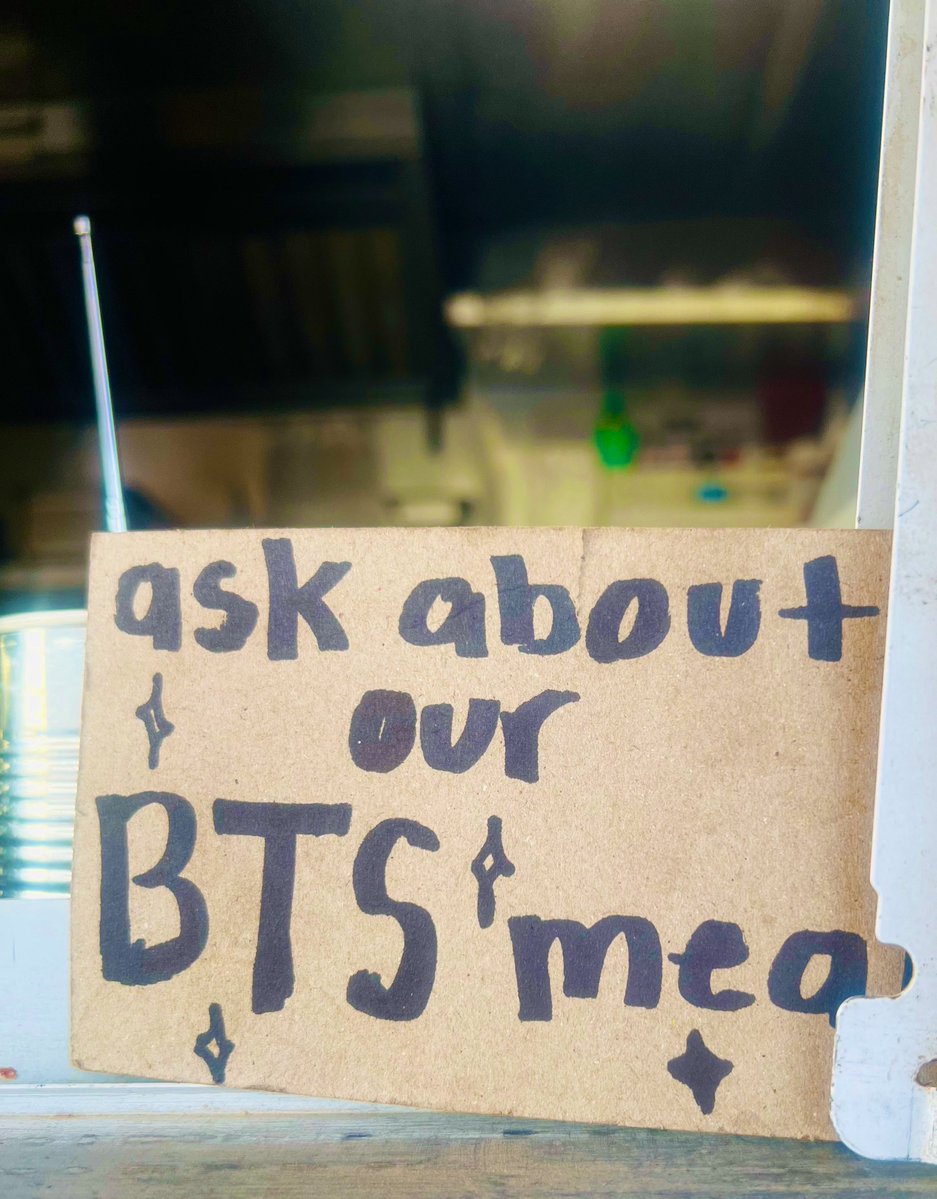 ask about
our
BTS
mea